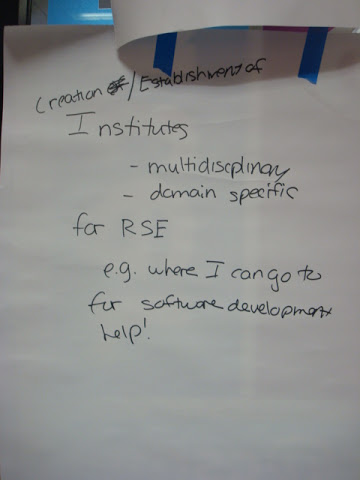 Creation of/Establishment of
Institutes
- multidiscplinary
- domain specific
for RSE
e.g. where I can go to
for software development
help!